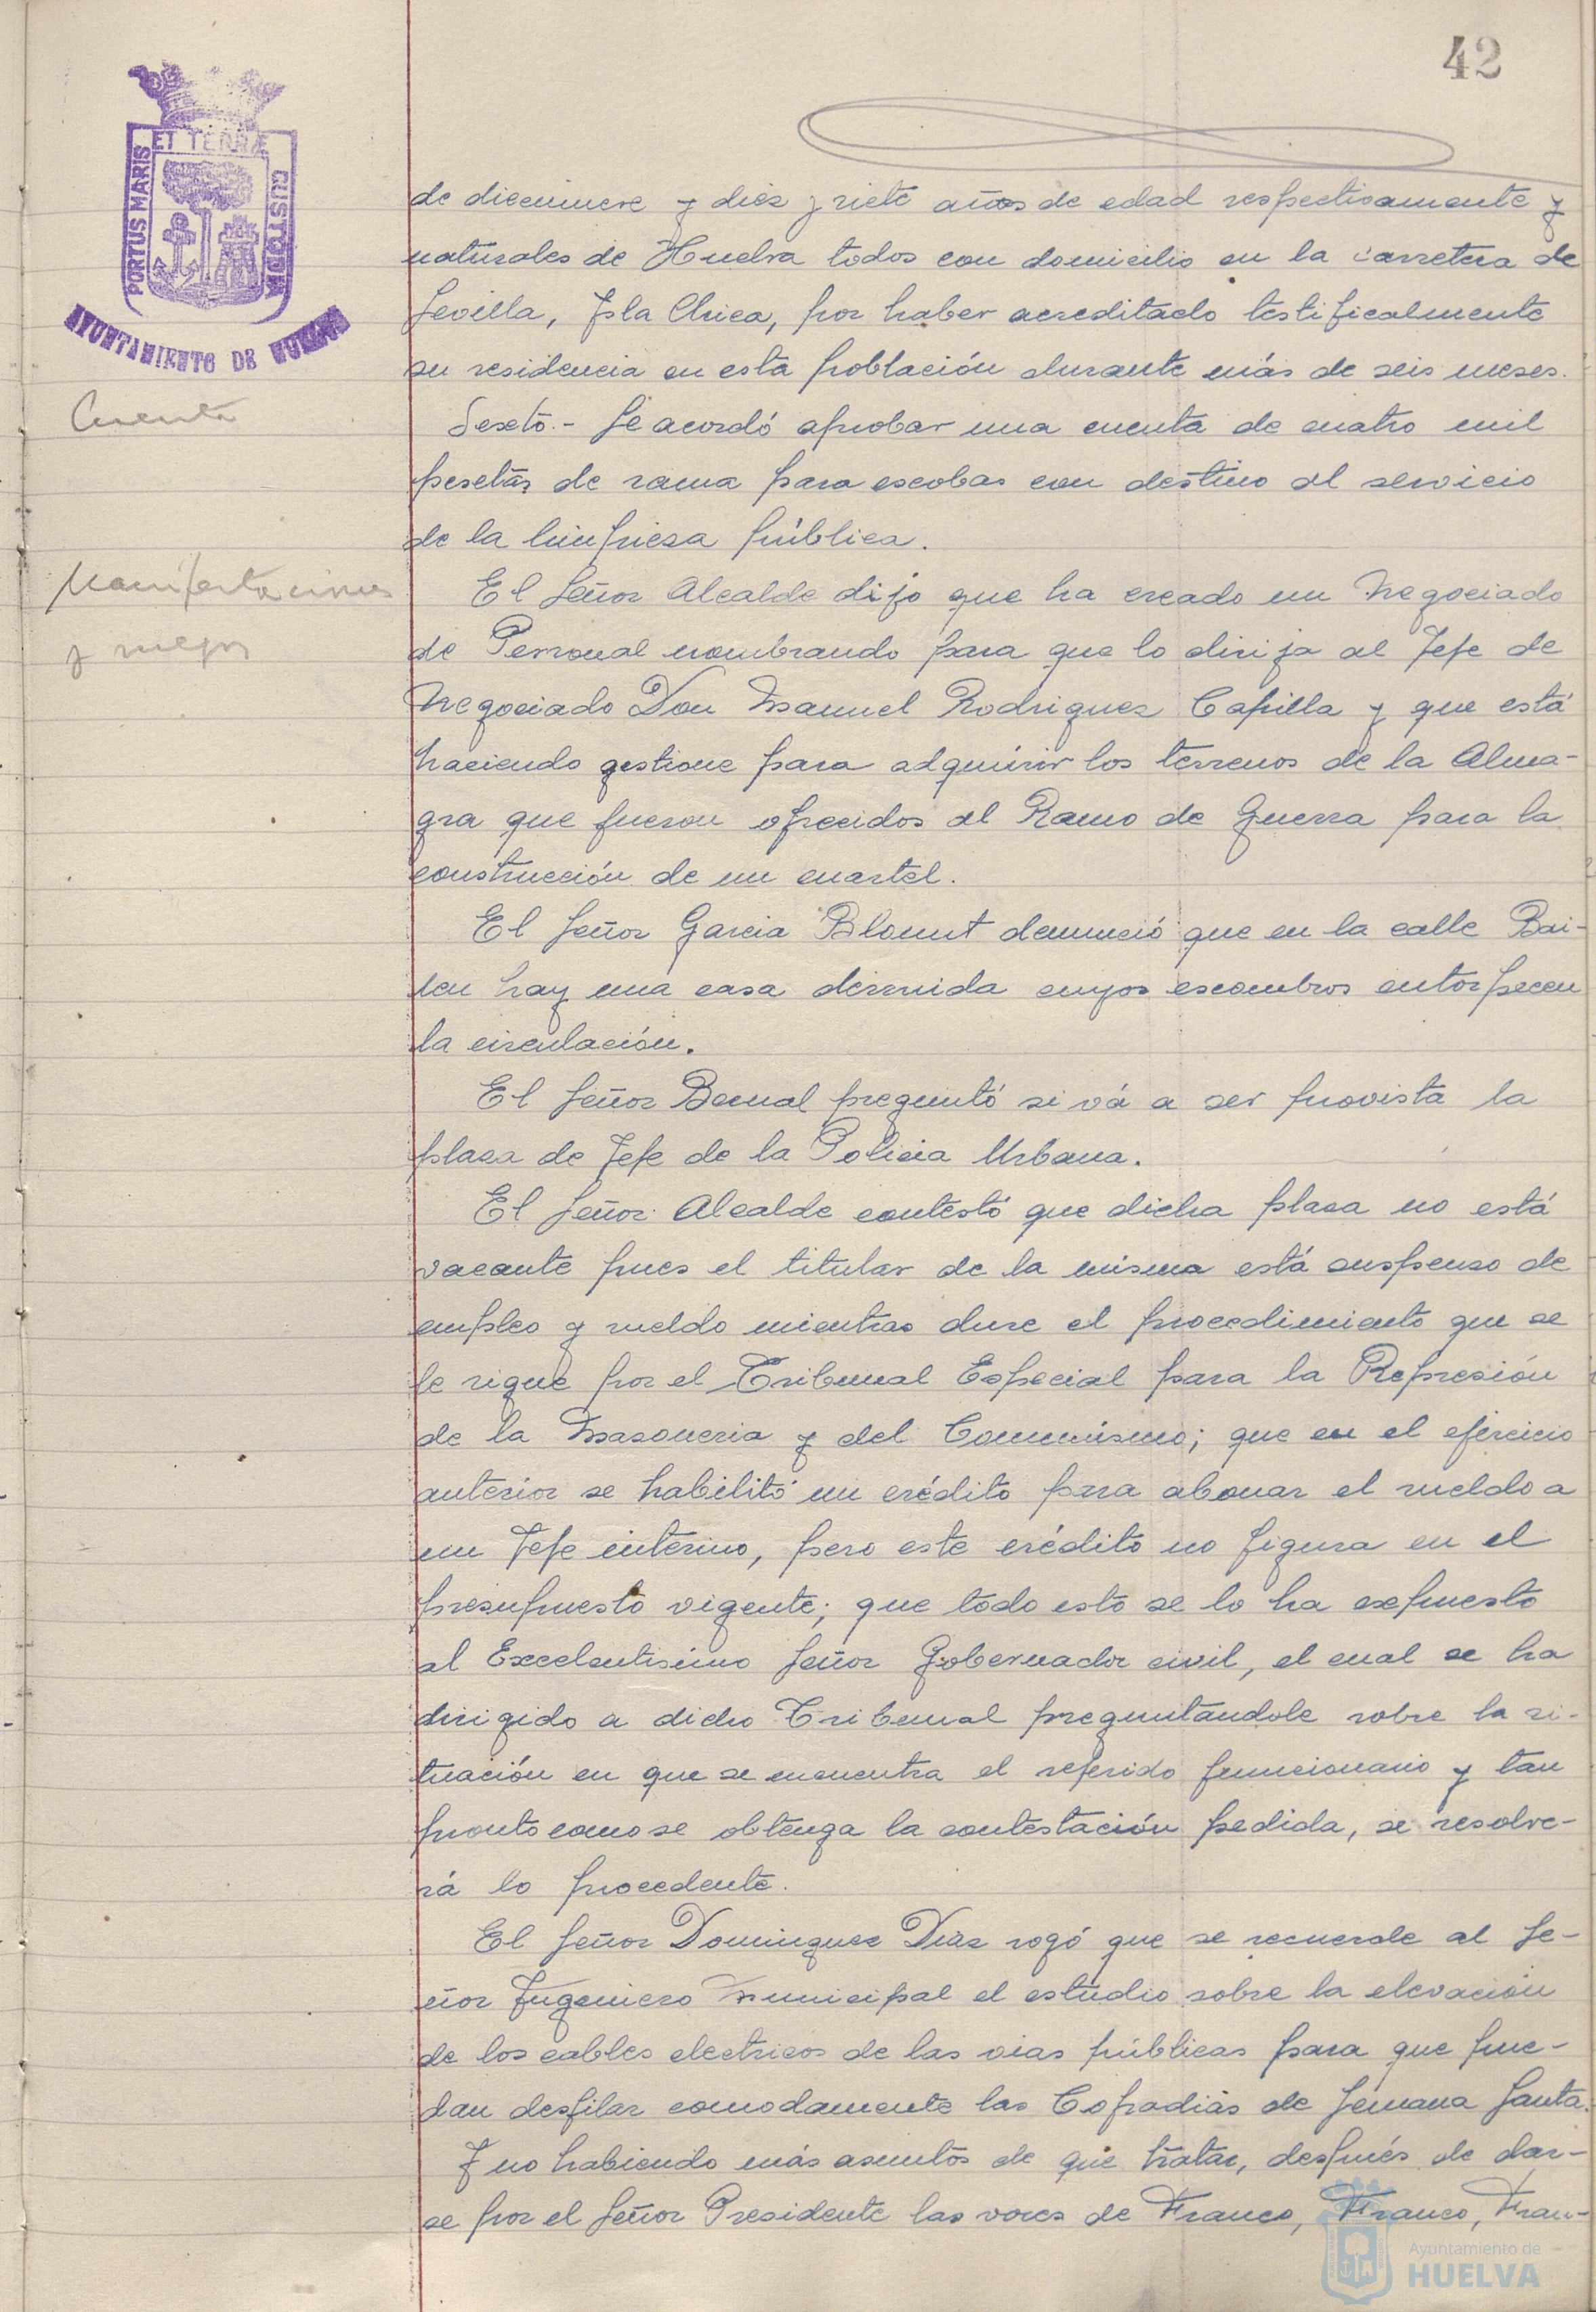 42
ET TERRÆ
PORTUS MARIS
CUSTODIA
AYUNTAMIENTO DE HUELVA
de diecinueve y diez y siete años de edad respectivamente y
naturales de Huelva todos con domicilio en la carretera de
Sevilla, Isla Chica, por haber acreditado testificalmente
su residencia en esta población durante más de seis meses.
Cuenta
Sexto.- Se acordó aprobar una cuenta de cuatro mil
pesetas de rama para escobas con destino al servicio
de la limpieza pública.
Manifestaciones
y ruegos
El Señor Alcalde dijo que ha creado un Negociado
de Personal nombrando para que lo dirija al Jefe de
Negociado Don Manuel Rodriguez Capilla y que está
haciendo gestione para adquirir los terrenos de la Alma-
gra que fueron ofrecidos al Ramo de Guerra para la
construcción de un cuartel.
El Señor Garcia Blount denunció que en la calle Bai-
len hay una casa derruida cuyos escombros entorpecen
la circulación.
El Señor Bernal preguntó si vá a ser provista la
plaza de Jefe de la Policia Urbana.
El Señor Alcalde contestó que dicha plaza no está
vacante pues el titular de la misma está suspenso de
empleo y sueldo mientras dure el procedimiento que se
le sigue por el Tribunal Especial para la Represión
de la Masoneria y del Comunismo; que en el ejercicio
anterior se habilitó un crédito para abonar el sueldo a
un Jefe interino, pero este crédito no figura en el
presupuesto vigente; que todo esto se lo ha expuesto
al Excelentisimo Señor Gobernador civil, el cual se ha
dirigido a dicho Tribunal preguntandole sobre la si-
tuación en que se encuentra el referido funcionario y tan
pronto como se obtenga la contestación pedida, se resolve-
rá lo procedente.
El Señor Dominguez Diaz rogó que se recuerde al Se-
ñor Ingeniero Municipal el estudio sobre la elevación
de los cables electricos de las vias públicas para que pue-
dan desfilar comodamente las Cofradias de Semana Santa.
Y no habiendo más asuntos de que tratar, después de dar-
se por el Señor Presidente las voces de Franco, Franco, Fran-
Ayuntamiento de
HUELVA